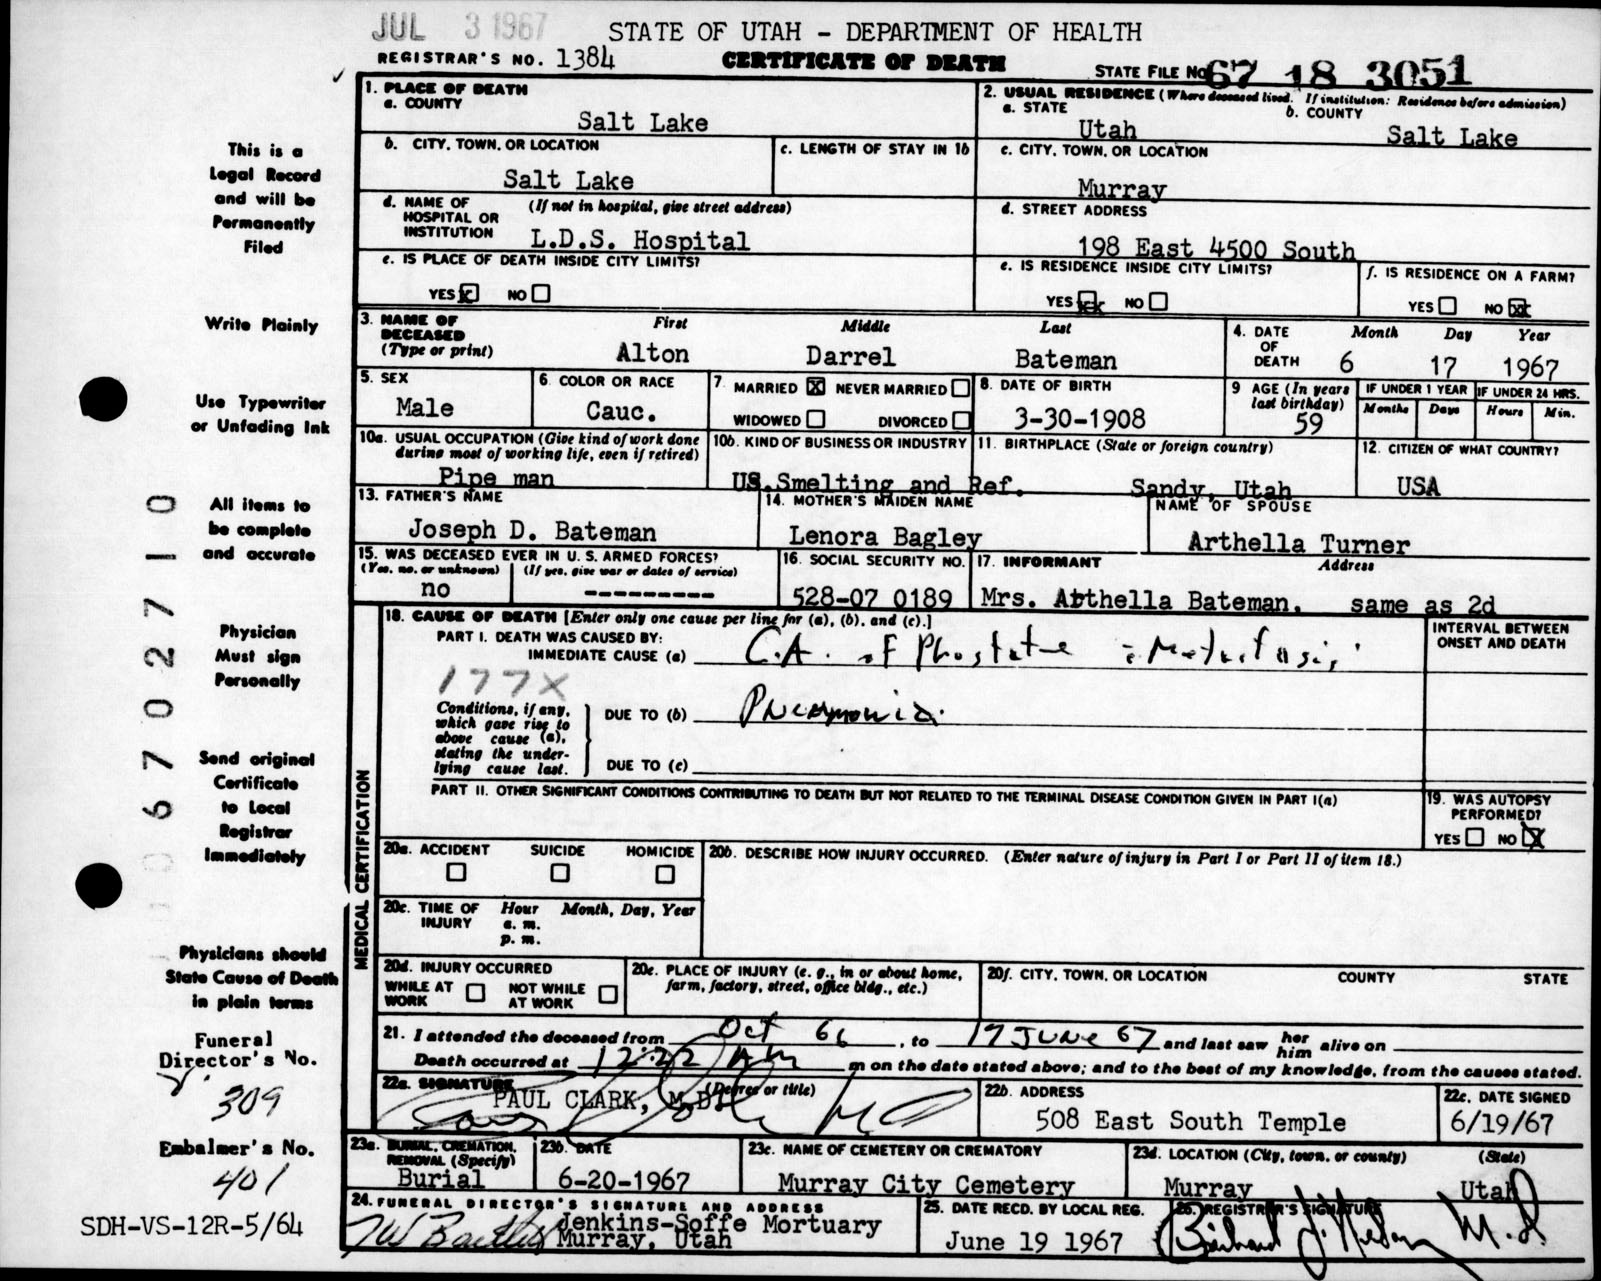 JUL 3 1967
STATE OF UTAH – DEPARTMENT OF HEALTH
REGISTRAR'S NO. 1384
CERTIFICATE OF DEATH
STATE FILE NO. 67 18 3051
This is a
Legal Record
and will be
Permanently
Filed
Write Plainly
Use Typewriter
or Unfading Ink
All items to
be complete
and accurate
Physician
Must sign
Personally
Send original
Certificate
to Local
Registrar
Immediately
Physicians should
State Cause of Death
in plain terms
Funeral
Director's No.
309
Embalmer's No.
401
SDH-VS-12R-5/64
1. PLACE OF DEATH
a. COUNTY
Salt Lake
b. CITY, TOWN, OR LOCATION
Salt Lake
c. LENGTH OF STAY IN 1b
d. NAME OF HOSPITAL OR INSTITUTION (If not in hospital, give street address)
L.D.S. Hospital
e. IS PLACE OF DEATH INSIDE CITY LIMITS?
YES X NO
2. USUAL RESIDENCE (Where deceased lived. If institution: Residence before admission)
a. STATE
Utah
b. COUNTY
Salt Lake
c. CITY, TOWN, OR LOCATION
Murray
d. STREET ADDRESS
198 East 4500 South
e. IS RESIDENCE INSIDE CITY LIMITS?
YES XX NO
f. IS RESIDENCE ON A FARM?
YES NO XX
3. NAME OF DECEASED (Type or print)
First Middle Last
Alton Darrel Bateman
4. DATE OF DEATH Month Day Year
6 17 1967
5. SEX
Male
6. COLOR OR RACE
Cauc.
7. MARRIED X NEVER MARRIED
WIDOWED DIVORCED
8. DATE OF BIRTH
3-30-1908
9 AGE (In years last birthday)
59
IF UNDER 1 YEAR
Months Days
IF UNDER 24 HRS.
Hours Min.
10a. USUAL OCCUPATION (Give kind of work done during most of working life, even if retired)
Pipe man
10b. KIND OF BUSINESS OR INDUSTRY
US.Smelting and Ref.
11. BIRTHPLACE (State or foreign country)
Sandy, Utah
12. CITIZEN OF WHAT COUNTRY?
USA
13. FATHER'S NAME
Joseph D. Bateman
14. MOTHER'S MAIDEN NAME
Lenora Bagley
NAME OF SPOUSE
Arthella Turner
15. WAS DECEASED EVER IN U. S. ARMED FORCES?
(Yes, no, or unknown) (If yes, give war or dates of service)
no ----------
16. SOCIAL SECURITY NO.
528-07 0189
17. INFORMANT Address
Mrs. Arthella Bateman. same as 2d
MEDICAL CERTIFICATION
18. CAUSE OF DEATH [Enter only one cause per line for (a), (b), and (c).]
PART I. DEATH WAS CAUSED BY:
IMMEDIATE CAUSE (a) C.A. of Phostate c̄ Metastasis
177X
Conditions, if any, which gave rise to above cause (a), stating the underlying cause last.
DUE TO (b) Pneumonia.
DUE TO (c)
INTERVAL BETWEEN ONSET AND DEATH
PART II. OTHER SIGNIFICANT CONDITIONS CONTRIBUTING TO DEATH BUT NOT RELATED TO THE TERMINAL DISEASE CONDITION GIVEN IN PART I(a)
19. WAS AUTOPSY PERFORMED?
YES NO X
20a. ACCIDENT SUICIDE HOMICIDE
20b. DESCRIBE HOW INJURY OCCURRED. (Enter nature of injury in Part I or Part II of item 18.)
20c. TIME OF INJURY Hour Month, Day, Year
a. m.
p. m.
20d. INJURY OCCURRED
WHILE AT WORK NOT WHILE AT WORK
20e. PLACE OF INJURY (e. g., in or about home, farm, factory, street, office bldg., etc.)
20f. CITY, TOWN, OR LOCATION COUNTY STATE
21. I attended the deceased from Oct 66, to 17 JUNE 67 and last saw her him alive on
Death occurred at 12:22 AM m on the date stated above; and to the best of my knowledge, from the causes stated.
22a. SIGNATURE (Degree or title)
PAUL CLARK, M.D.
22b. ADDRESS
508 East South Temple
22c. DATE SIGNED
6/19/67
23a. BURIAL, CREMATION, REMOVAL (Specify)
Burial
23b. DATE
6-20-1967
23c. NAME OF CEMETERY OR CREMATORY
Murray City Cemetery
23d. LOCATION (City, town, or county) (State)
Murray Utah
24. FUNERAL DIRECTOR'S SIGNATURE AND ADDRESS
Jenkins-Soffe Mortuary
Murray, Utah
25. DATE RECD. BY LOCAL REG.
June 19 1967
26. REGISTRAR'S SIGNATURE
M.D.
6702710